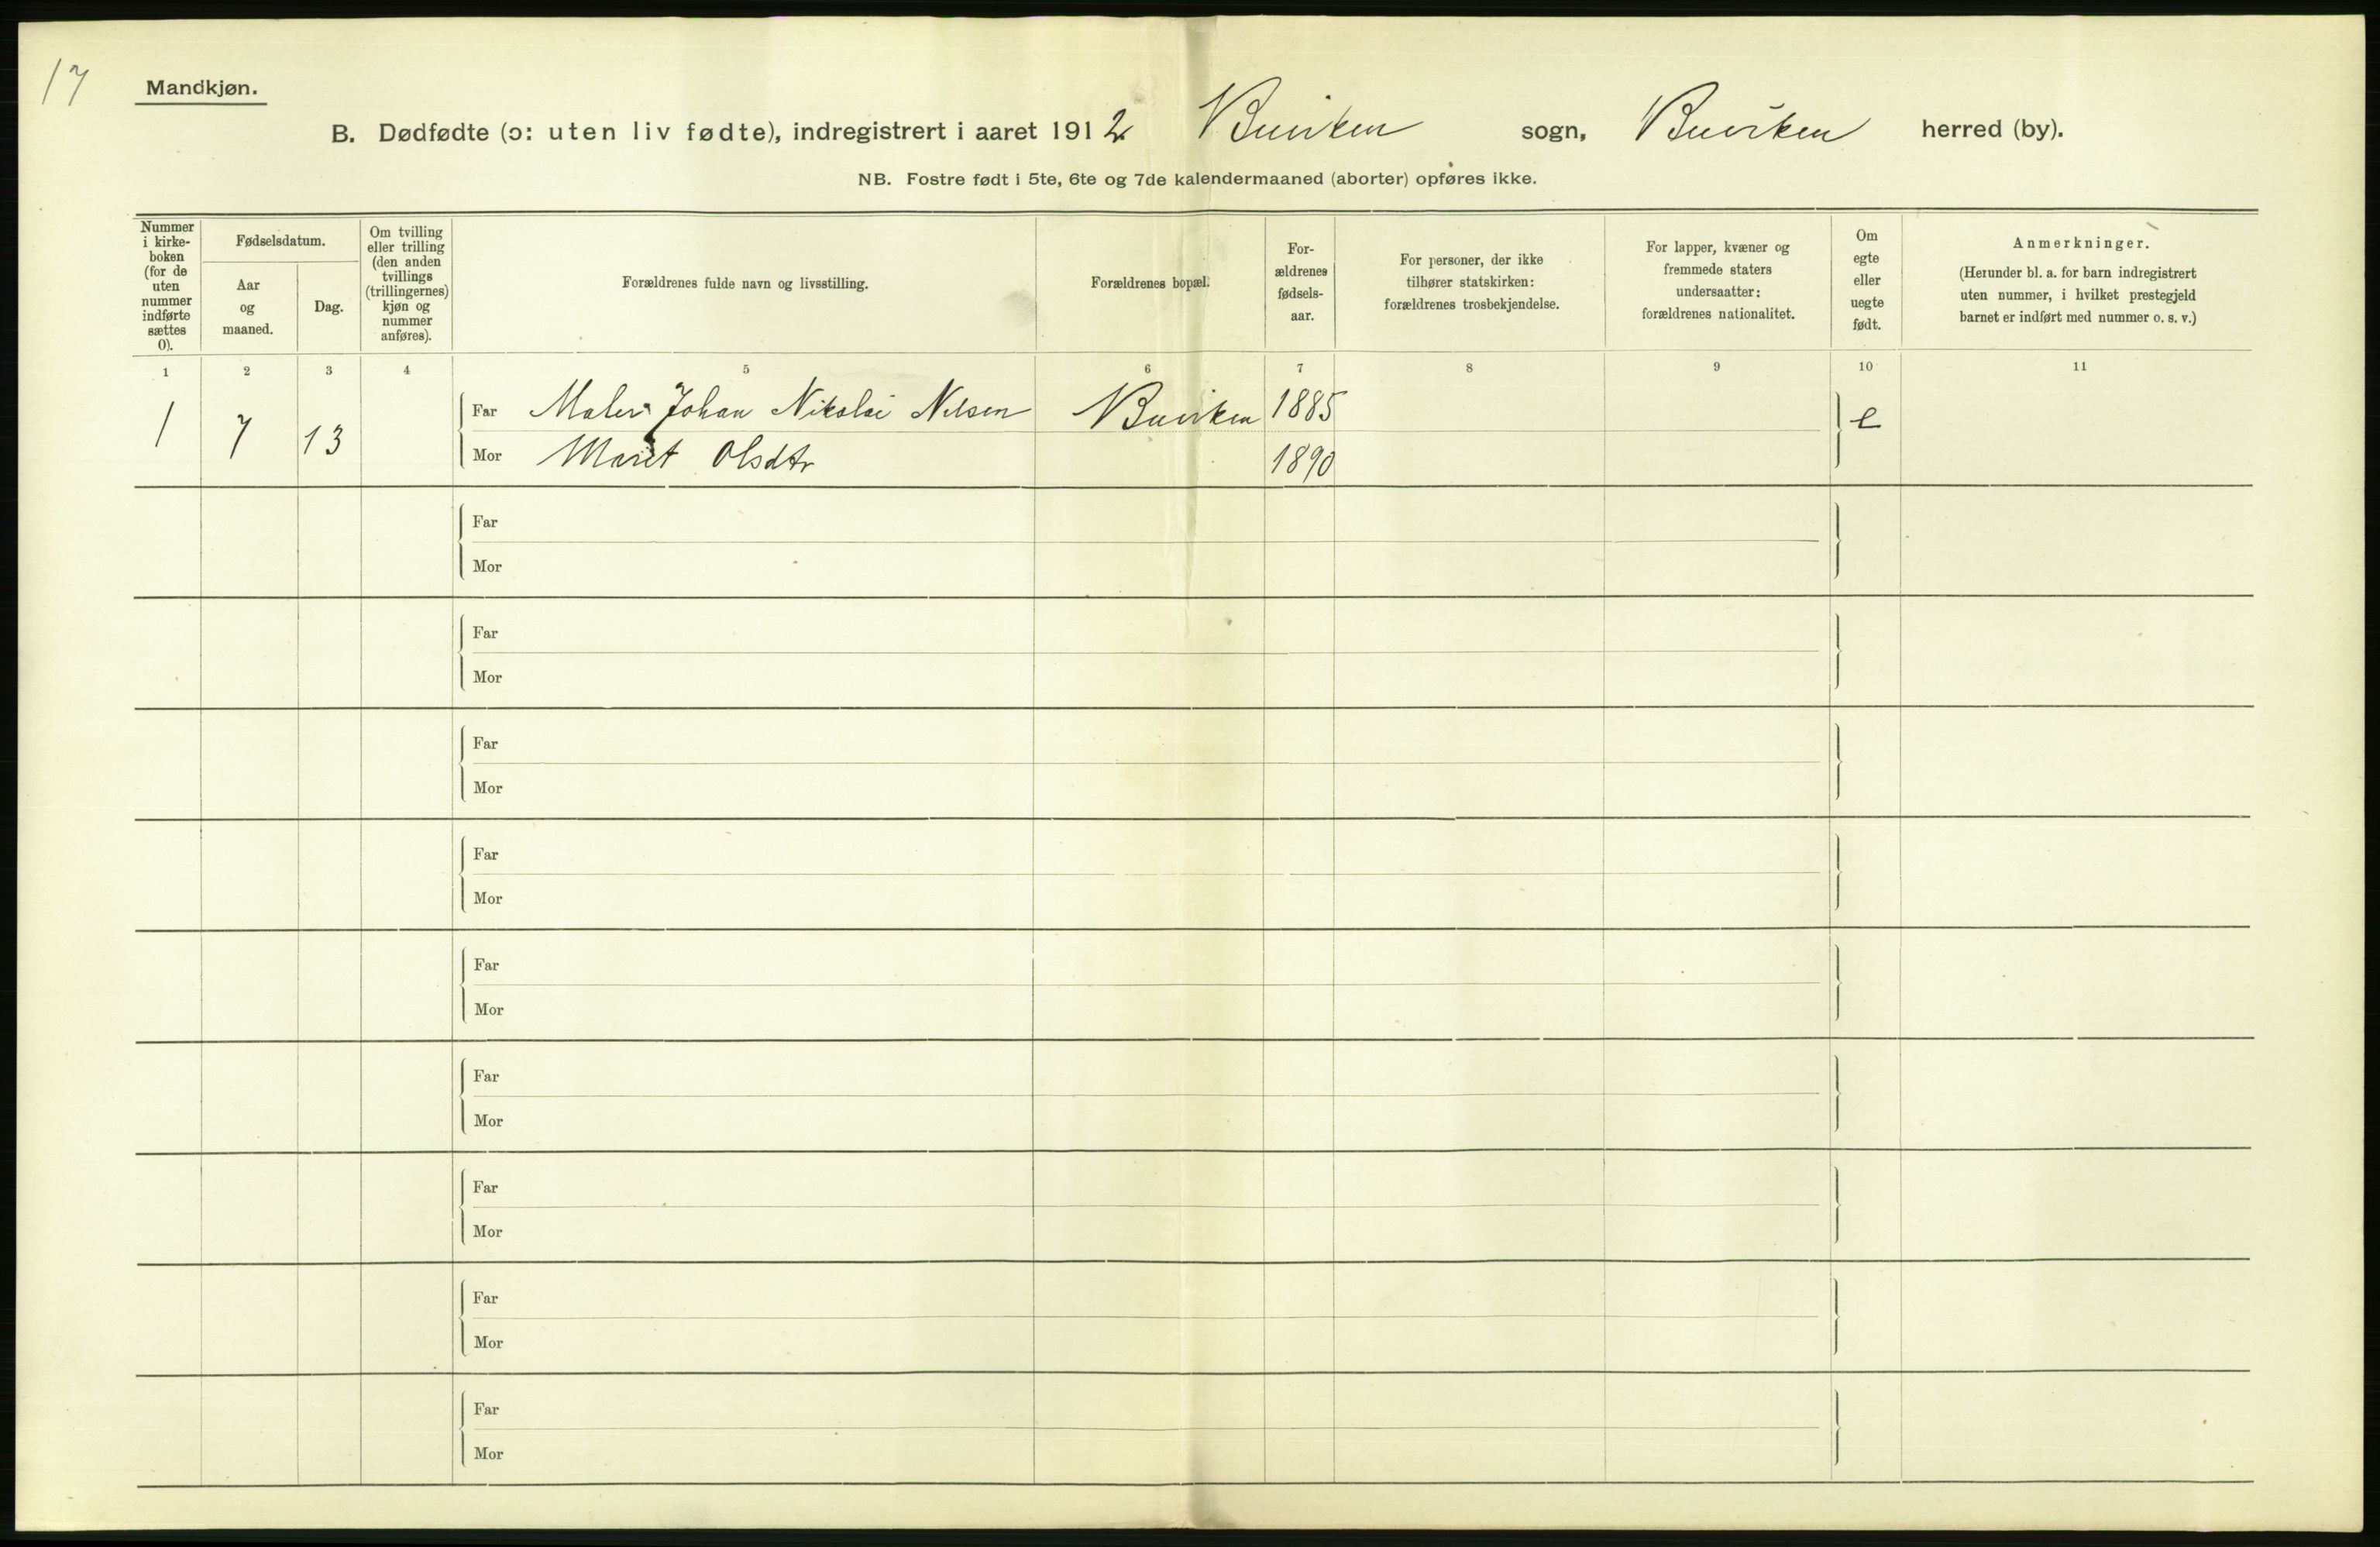 17
Mandkjøn.
B. Dødfødte (ɔ: uten liv fødte), indregistrert i aaret 1912 Buviken sogn, Buviken herred (by).
NB. Fostre født i 5te, 6te og 7de kalendermaaned (aborter) opføres ikke.
Nummer
i kirke-
boken
(for de
uten
nummer
indførte
sættes
0).
Fødselsdatum.
Aar
og
maaned.
Dag.
Om tvilling
eller trilling
(den anden
tvillings
(trillingernes)
kjøn og
nummer
anføres).
Forældrenes fulde navn og livsstilling.
Forældrenes bopæl.
For-
ældrenes
fødsels-
aar.
For personer, der ikke
tilhører statskirken:
forældrenes trosbekjendelse.
For lapper, kvæner og
fremmede staters
undersaatter:
forældrenes nationalitet.
Om
egte
eller
uegte
født.
Anmerkninger.
(Herunder bl. a. for barn indregistrert
uten nummer, i hvilket prestegjeld
barnet er indført med nummer o. s. v.)
1 2 3 4 5 6 7 8 9 10 11
1 7 13 Far Maler Johan Nikolai Nilsen Buviken 1885 e
Mor Marit Olsdtr 1890
Far
Mor
Far
Mor
Far
Mor
Far
Mor
Far
Mor
Far
Mor
Far
Mor
Far
Mor
Far
Mor